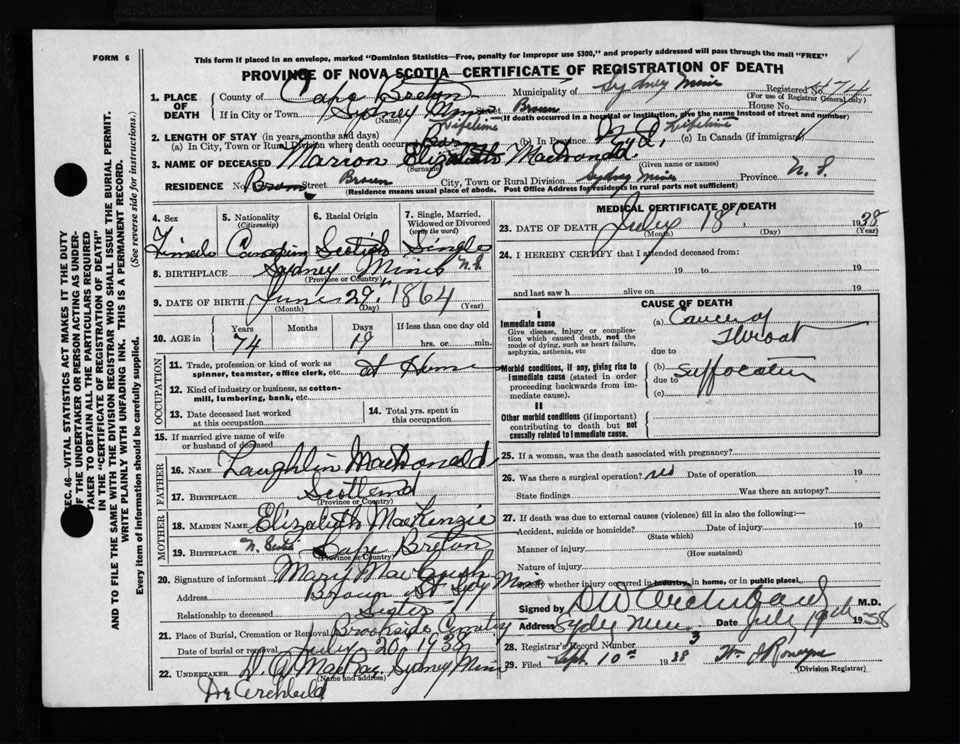 FORM 6
This form if placed in an envelope, marked "Dominion Statistics—Free, penalty for improper use $300," and properly addressed will pass through the mail "FREE"
PROVINCE OF NOVA SCOTIA—CERTIFICATE OF REGISTRATION OF DEATH
1. PLACE OF DEATH
County of Cape Breton
Municipality of Sydney Mines
Registered No. 474
(For use of Registrar General only)
If in City or Town Sydney Mines Street Brown House No.
(Name) (If death occurred in a hospital or institution, give the name instead of street and number)
2. LENGTH OF STAY (in years, months and days)
(a) In City, Town or Rural Division where death occurred Lifetime (b) In Province Lifetime (c) In Canada (if immigrant)
3. NAME OF DECEASED Marion Elizabeth MacDonald
(Surname) (Given name or names)
RESIDENCE No. Street Brown City, Town or Rural Division Sydney Mines Province N. S.
(Residence means usual place of abode. Post Office Address for residents in rural parts not sufficient)
4. Sex
5. Nationality (Citizenship)
6. Racial Origin
7. Single, Married, Widowed or Divorced (write the word)
Female Canadian Scotish Single
8. BIRTHPLACE Sydney Mines N.S.
(Province or Country)
9. DATE OF BIRTH June 29th 1864
(Month) (Day) (Year)
10. AGE Years Months Days If less than one day old
74 19 hrs. or min.
OCCUPATION
11. Trade, profession or kind of work as spinner, teamster, office clerk, etc. at Home
12. Kind of industry or business, as cotton-mill, lumbering, bank, etc.
13. Date deceased last worked at this occupation
14. Total yrs. spent in this occupation
15. If married give name of wife or husband of deceased
FATHER
16. NAME Laughlin MacDonald
17. BIRTHPLACE Scotland
(Province or Country)
MOTHER
18. MAIDEN NAME Elizabeth MacKenzie
19. BIRTHPLACE Cape Breton
(Province or Country)
20. Signature of informant
Address Brown St Syd Mines
Relationship to deceased Sister
21. Place of Burial, Cremation or Removal Brookside Cemetery
Date of burial or removal July 20 1938
22. UNDERTAKER D. A. MacKay, Sydney Mines
(Name and address)
Dr Archibald
MEDICAL CERTIFICATE OF DEATH
23. DATE OF DEATH July 18, 1938
(Month) (Day) (Year)
24. I HEREBY CERTIFY that I attended deceased from:
19 to 19
and last saw h alive on 19
CAUSE OF DEATH
I
Immediate cause
Give disease, injury or complication which caused death, not the mode of dying, such as heart failure, asphyxia, asthenia, etc
(a) Cancer of Throat
due to
Morbid conditions, if any, giving rise to immediate cause (stated in order proceeding backwards from immediate cause).
(b) Suffocation
due to
(c)
II
Other morbid conditions (if important) contributing to death but not causally related to immediate cause.
25. If a woman, was the death associated with pregnancy?
26. Was there a surgical operation? no Date of operation 19
State findings Was there an autopsy?
27. If death was due to external causes (violence) fill in also the following:—
Accident, suicide or homicide? Date of injury 19
(State which)
Manner of injury
(How sustained)
Nature of injury
Specify whether injury occurred in industry, in home, or in public place.
Signed by D W Archibald M.D.
Address Sydney Mines Date July 19th 1938
28. Registrar's Record Number 3
29. Filed Sept. 10th 1938
(Division Registrar)
SEC. 46—VITAL STATISTICS ACT MAKES IT THE DUTY
OF THE UNDERTAKER OR PERSON ACTING AS UNDERTAKER TO OBTAIN ALL THE PARTICULARS REQUIRED
IN THE "CERTIFICATE OF REGISTRATION OF DEATH"
AND TO FILE THE SAME WITH THE DIVISION REGISTRAR WHO SHALL ISSUE THE BURIAL PERMIT.
WRITE PLAINLY WITH UNFADING INK. THIS IS A PERMANENT RECORD.
Every item of information should be carefully supplied. (See reverse side for instructions.)